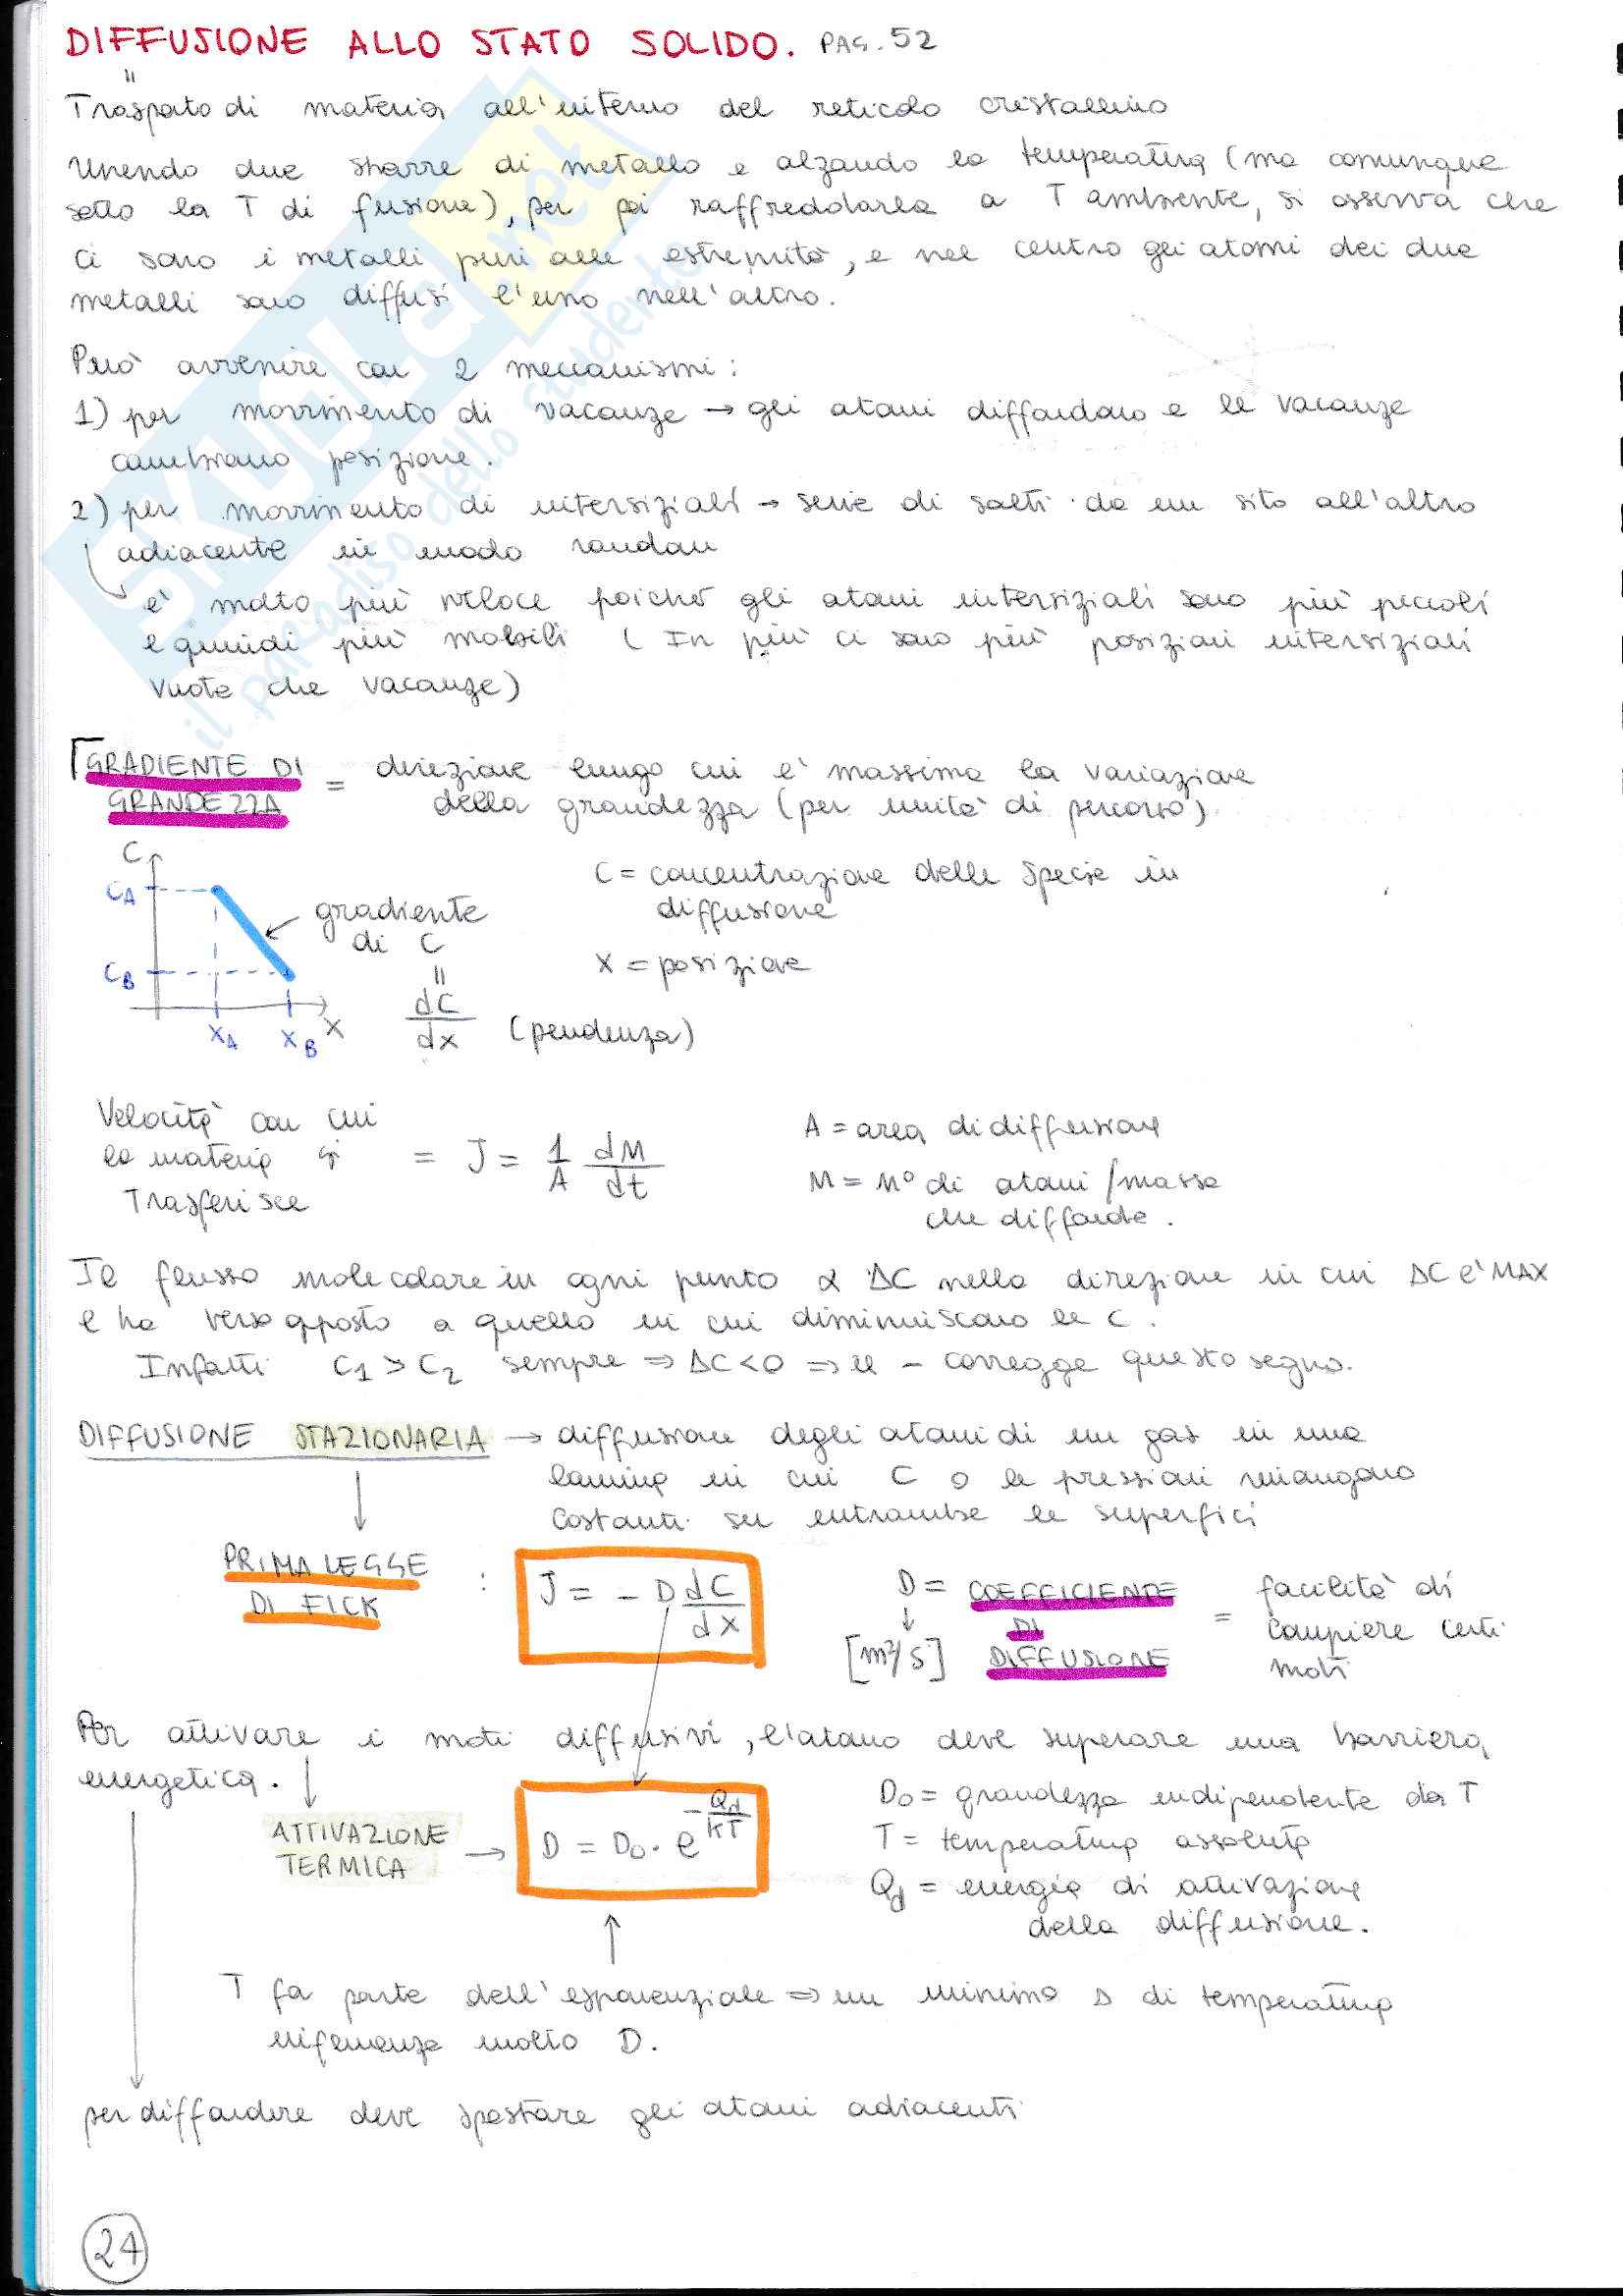 DIFFUSIONE ALLO STATO SOLIDO. PAG. 52
Trasporto di materia all'interno del reticolo cristallino
Unendo due sbarre di metallo e alzando la temperatura (ma comunque
sotto la T di fusione), per poi raffreddarle a T ambiente, si osserva che
ci sono i metalli puri alle estremità, e nel centro gli atomi dei due
metalli sono diffusi l'uno nell'altro.
Può avvenire con 2 meccanismi:
1) per movimento di vacanze → gli atomi diffondono e le vacanze
cambiano posizione.
2) per movimento di intersiziali → serie di salti da un sito all'altro
adiacente in modo random
è molto più veloce poiché gli atomi intersiziali sono più piccoli
e quindi più mobili (In più ci sono più posizioni intersiziali
vuote che vacanze)
GRADIENTE DI GRANDEZZA = direzione lungo cui è massima la variazione
della grandezza (per unità di percorso).
C
CA
CB
XA
XB
X
gradiente
di C
=
dC/dx (pendenza)
C = concentrazione delle specie in
diffusione
X = posizione
Velocità con cui
la materia si
trasferisce
= J = 1/A dM/dt
A = area di diffusione
M = n° di atomi/massa
che diffonde.
Il flusso molecolare in ogni punto α ΔC nella direzione in cui ΔC è MAX
e ha verso opposto a quello in cui diminuiscono le C.
Infatti C1 > C2 sempre ⇒ ΔC < 0 ⇒ il - corregge questo segno.
DIFFUSIONE STAZIONARIA → diffusione degli atomi di un gas in una
lamina in cui C o le pressioni rimangono
costanti su entrambe le superfici
PRIMA LEGGE
DI FICK
: J = - D dC/dx
D = COEFFICIENTE
DI
DIFFUSIONE
[m²/s]
= facilità di
compiere certi
moti
Per attivare i moti diffusivi, l'atomo deve superare una barriera
energetica.
ATTIVAZIONE
TERMICA
→ D = D0 · e^(-Qd/KT)
D0 = grandezza indipendente da T
T = temperatura assoluta
Qd = energia di attivazione
della diffusione.
T fa parte dell'esponenziale ⇒ un minimo Δ di temperatura
influenza molto D.
per diffondere deve spostare gli atomi adiacenti
24
SKUOLA.net
il paradiso dello studente